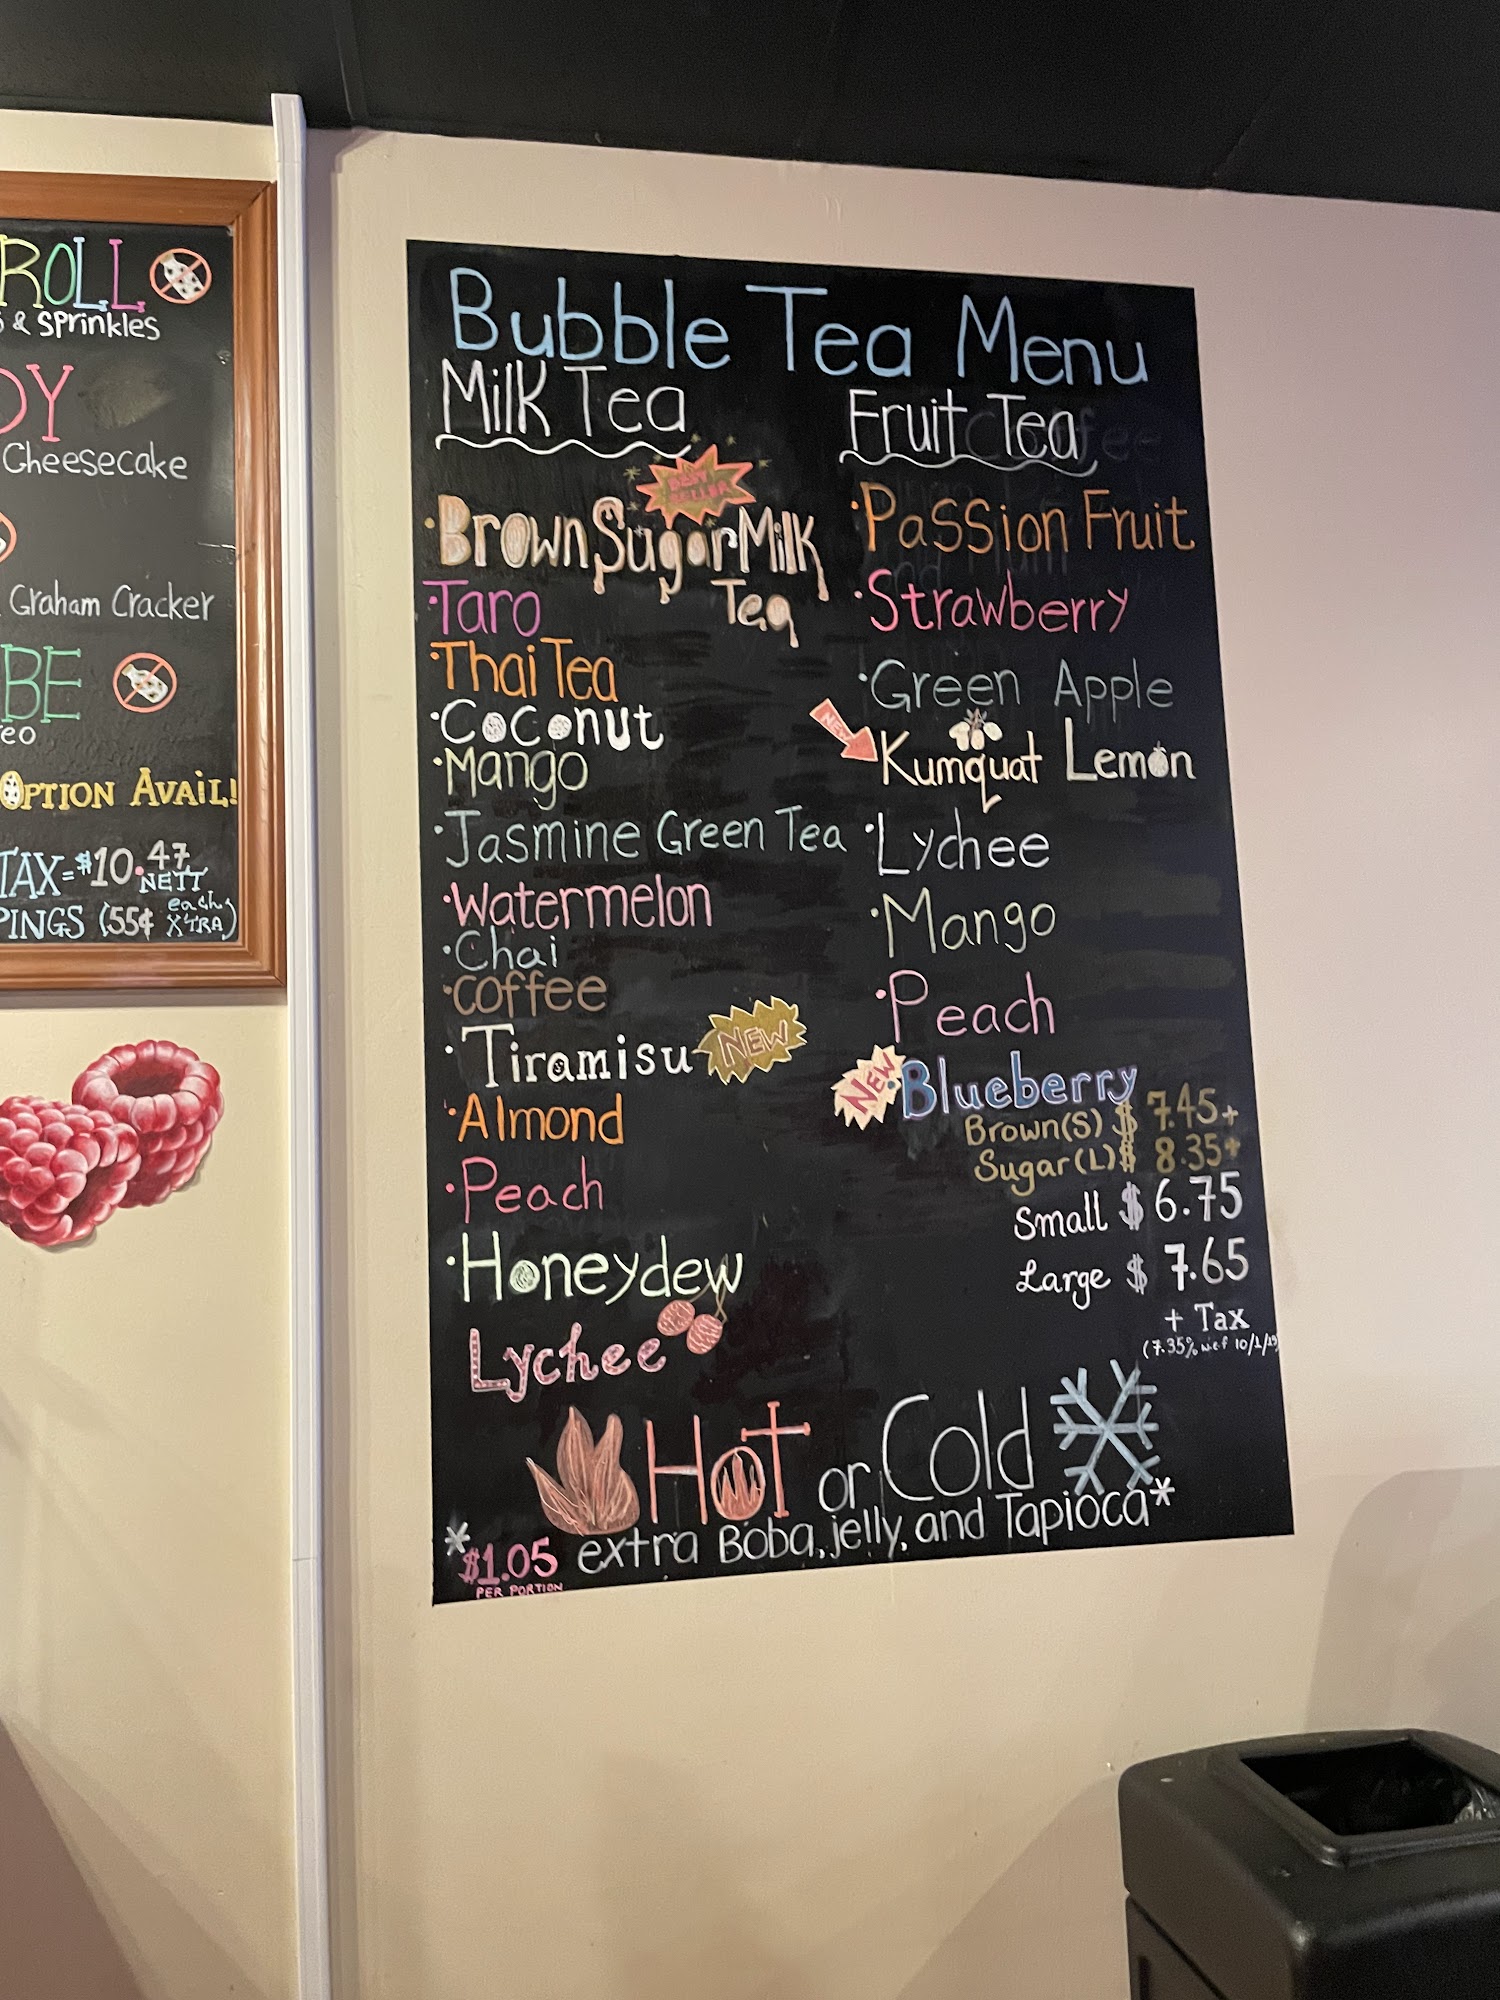 ROLL
& Sprinkles
DY
Cheesecake
Graham Cracker
BE
eo
OPTION AVAIL!
TAX=$10.47
NETT
PINGS (55¢ each XTRA)
Bubble Tea Menu
Milk Tea
BEST SELLER
·Brown Sugar Milk
Tea
·Taro
·Thai Tea
·Coconut
·Mango
·Jasmine Green Tea
·Watermelon
·Chai
·Coffee
·Tiramisu NEW
·Almond
·Peach
·Honeydew
Lychee
Fruit Tea
·Passion Fruit
·Strawberry
·Green Apple
NEW
Kumquat Lemon
·Lychee
·Mango
·Peach
NEW Blueberry
Brown(S) $ 7.45+
Sugar(L)$ 8.35+
Small $ 6.75
Large $ 7.65
+ Tax
(7.35% w.e.f 10/1/19)
HOT or Cold
*$1.05 extra Boba, jelly, and Tapioca*
PER PORTION